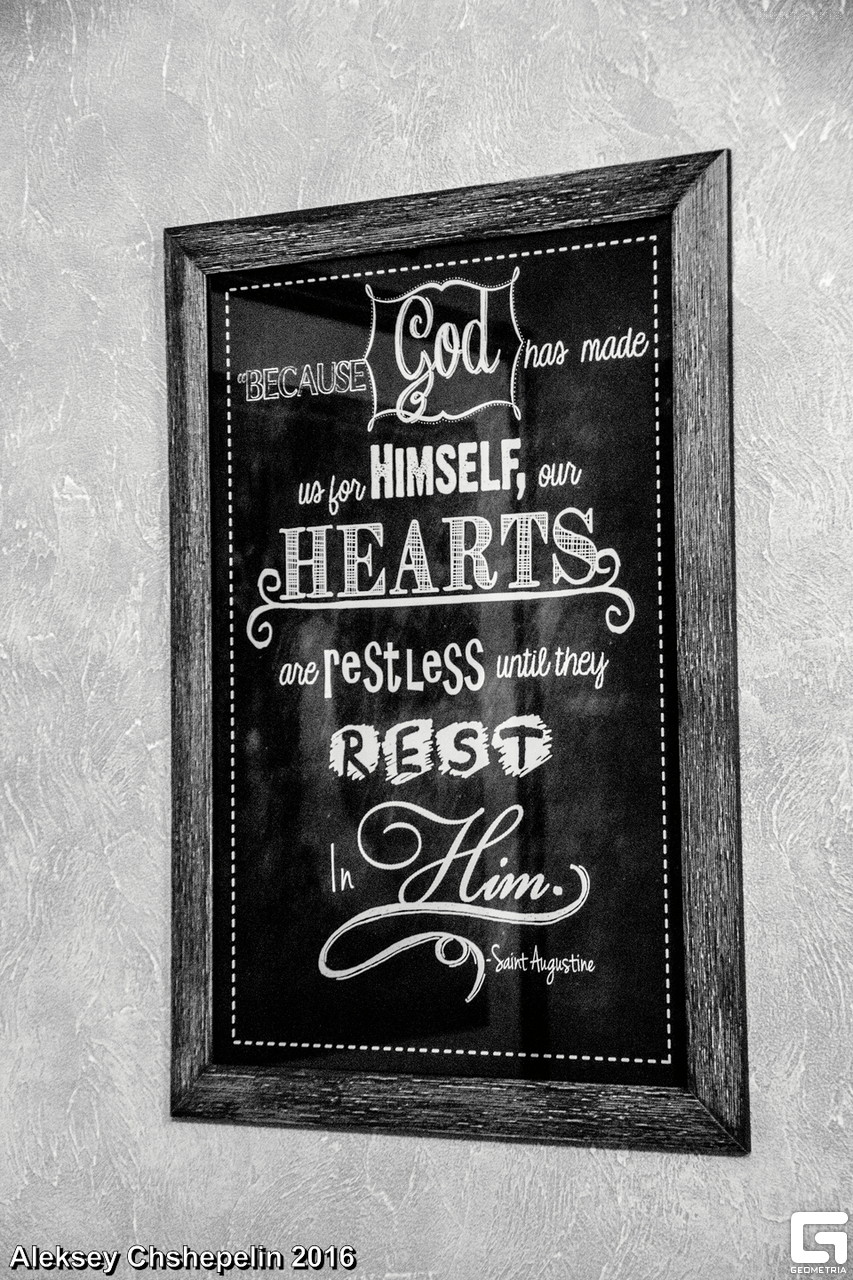 “BECAUSE God has made
us for HIMSELF, our
HEARTS
are restless until they
REST
In Him.
-Saint Augustine
Aleksey Chshepelin 2016
GEOMETRIA